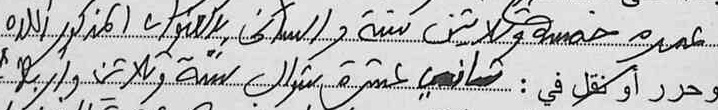 عمره خمسة وثلاثين سنة والساكن بالعنوان المذكور أعلاه
وحرر أو نقل في : ثاني عشرة شوال سنة وثلاثين وأربع